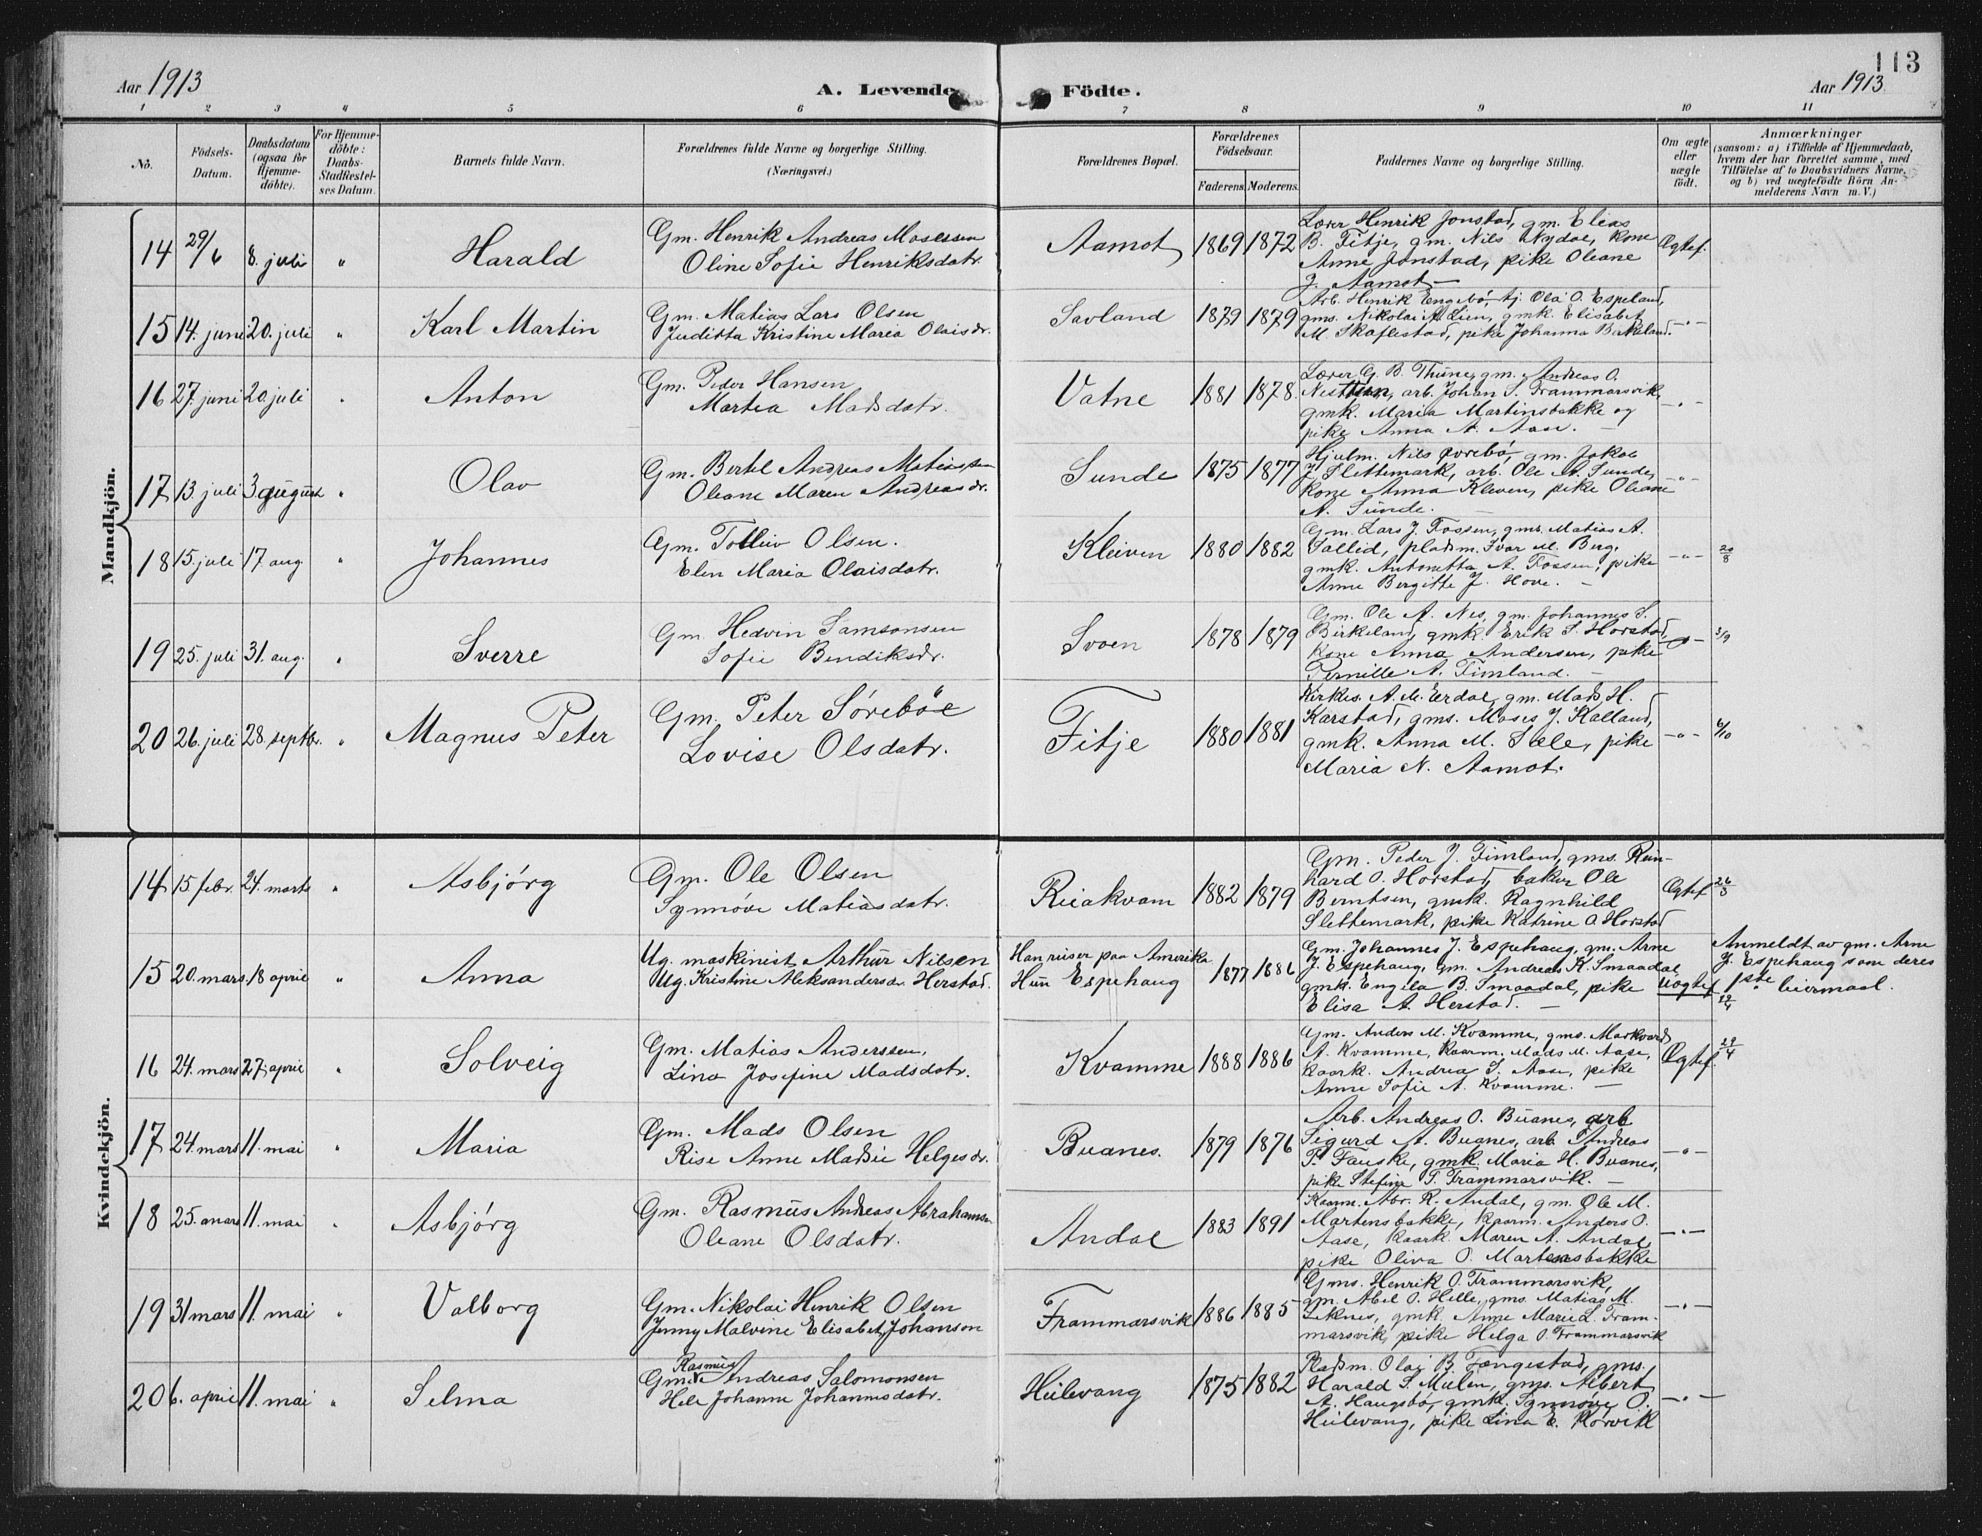 113
Aar 1913
A. Levende Födte.
Aar 1913
1 2 3 4 5 6 7 8 9 10 11
No.
Födsels-Datum.
Daabsdatum (ogsaa for Hjemme-döbte).
For Hjemme-döbte: Daabs-Stadfæstel-ses Datum.
Barnets fulde Navn.
Forældrenes fulde Navne og borgerlige Stilling. (Næringsvei.)
Forældrenes Bopæl.
Forældrenes Födselsaar.
Faderens. Moderens.
Faddernes Navne og borgerlige Stilling.
Om ægte eller uægte födt.
Anmærkninger
(saasom: a) i Tilfælde af Hjemmedaab, hvem der har forrettet samme, med Tilföielse af to Daabsvidners Navne, og b) ved uægtefödte Börn An-melderens Navn m. V.)
Mandkjön.
14 29/6 8. juli " Harald
Gm. Henrik Andreas Mosessen
Oline Sofie Henriksdatr.
Aamot 1869 1872
Lærer Henrik Jonstad, gm. Elias
B. Fitje, gm. Nils Nydal, kone
Anne Jonstad, pike Oleane
J. Aamot —
Ægtef.
15 14. juni 20. juli " Karl Martin
Gm. Matias Lars Olsen
Juditta Kristine Maria Olaisdr.
Savland 1879 1879
Arb. Henrik Engebø, tj. Ola O. Espeland,
gms. Nikolai A. Lien, gmk. Elisabet
M. Skaflestad, pike Johanna Birkeland.
—"—
16 27. juni 20 juli " Anton
Gm. Peder Hansen
Martea Madsdatr.
Vatne 1881 1878
Lærer G. B. Thune, gm. Andreas O.
arb. Johan S. Frammarsvik,
gmk. Maria Martinsbakke og
pike Anna A. Aase. —
—"—
17 13. juli 3 august " Olav
Gm. Bertel Andreas Matiassen
Oleane Maren Andreasdr.
Sunde 1875 1877
Hjulm. Nils gm. Jakob
J. Slettemark, arb. Ole A. Sunde,
kone Anna Kleven, pike Oleane
A. Sunde. —
—"—
18 15. juli 17 aug " Johannes
Gm. Tolleiv Olsen.
Elen Maria Olaisdatr.
Kleiven 1880 1882
Gm. Lars J. Fossen, gms. Matias A.
Sallid, pladsm. Ivar M. Berg,
gmk. Antonetta A. Fossen, pike
Anne Bergitte J. Hove. —
—"— 20/8
19 25. juli 31. aug. " Sverre
Gm. Hedvin Samsonsen
Sofie Bendiksdr.
Svoen 1878 1879
Gm. Ole A. Nes, gm. Johannes S.
Birkeland, gmk. Erik S. Horstad,
kone Anna Andersen, pike
Pernille A. Timland. —
—"— 3/9
20 26. juli 28. septbr. " Magnus Peter
Gm. Peter Sørebøe
Lovise Olsdatr.
Fitje 1880 1881
Kirkes. A. M. Eerdal, gm. Mads H.
Karstad, gms. Moses J. Kalland,
gmk. Anna M. Sæle, pike
Maria N. Aamot.
—"— 6/10
Kvindekjön.
14 15 febr. 24. marts " Asbjørg
Gm. Ole Olsen
Synnøve Matiasdatr.
Reiakvam 1882 1879
Gm. Peder J. Timland, gms. Rein-
hard O. Horstad, baker Ole
Berntsen, gmk. Ragnhild
Slettemark, pike Katrine O Horstad
Ægtef 26/3
15 20. mars 18 april " Anna
Ug. maskinist Arthur Nilsen
Ug. Kristine Aleksandersdr. Herstad.
Han reiser paa Amerika
Hun Espehaug
1877 1886
Gm. Johannes J. Espehaug, gm. Arne
J. Espehaug, gm. Andreas K. Smaadal,
gmk. Engela B. Smaadal, pike
Elisa A. Herstad. —
Uægtef
Anmeldt av gm. Arne
J. Espehaug som deres
1ste leiermaal.
16 24. mars 27 april " Solveig
Gm. Matias Anderssen,
Lina Josefine Madsdatr.
Kvamme 1888 1886
Gm. Anders M. Kvamme, gms. Markvard
A. Kvamme, kaarm. Mads M. Aase,
kaark. Andrea S. Aase, pike
Anne Sofie A. Kvamme. —
Ægtef. 29/4
17 24. mars 11. mai " Maria
Gm. Mads Olsen
Rise Anne Madsie Helgesdr.
Buanes. 1879 1876
Arb. Andreas O. Buanes, arb
Sigurd A. Buanes, arb. Andreas
P. Fauske, gmk. Maria H. Buanes,
pike Stefine S. Frammarsvik. —
—"—
18 25. mars 11. mai " Asbjørg
Gm. Rasmus Andreas Abrahamsen
Oleane Olsdatr.
Andal 1883 1891
Kaarm. Abr. R. Andal, gm. Ole M.
Martensbakke, kaarm. Anders O.
Aase, kaark. Maren A. Andal,
pike Oliva O. Martensbakke
—"—
19 31 mars 11. mai " Valborg
Gm. Nikolai Henrik Olsen
Jenny Malvine Elisabet Johanson
Frammarsvik 1886 1885
Gms. Henrik O. Frammarsvik,
gm. Abel O. Helle, gms. Matias M.
Leknes, gmk. Anne Marie L. Fram-
marsvik, pike Helga O. Frammarsvik
—"—
20 6. april 11. mai " Selma
Gm. Rasmus Andreas Salomonsen
Hele Johanne Johannesdatr.
Heilevang 1875 1882
Pladsm. Olai B. Fængestad, gms.
Harald S. Mulen, gms. Albert
A. Haugsbø, gmk. Synnøve O.
Heilevang, pike Lina E. Kørvik
—"—